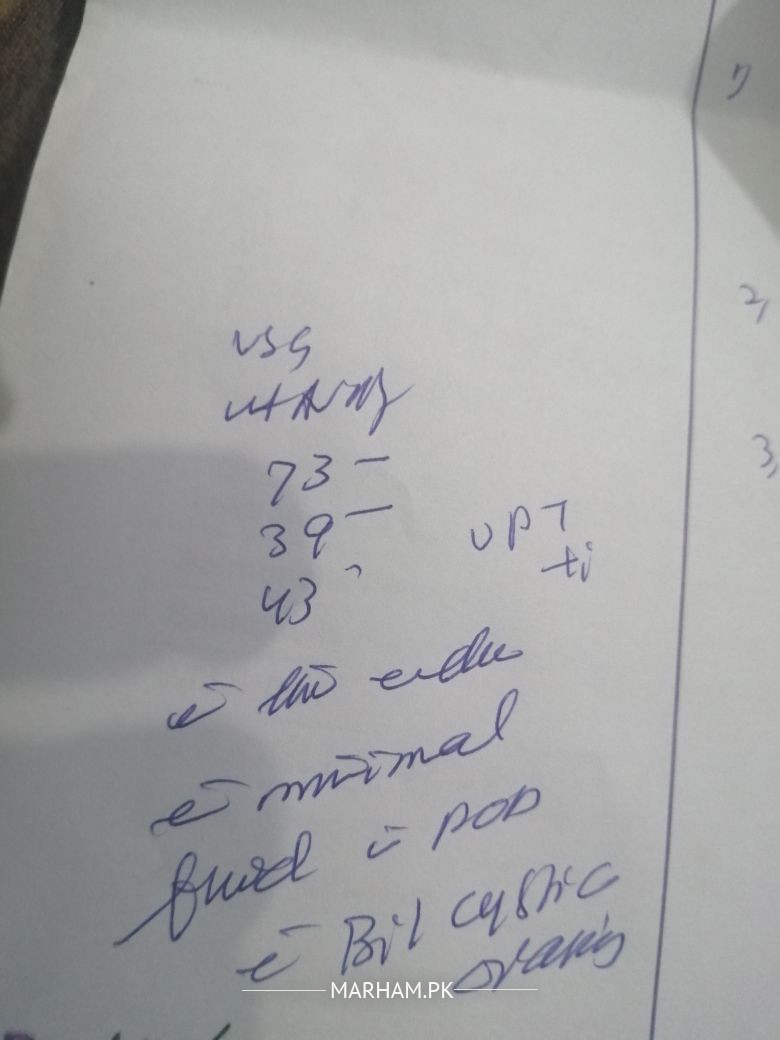 USG
73 -
39 -
43
UPT
c̄ thin endo
c̄ minimal
fluid in POD
c̄ Bil cystic
ovaries
1)
2,
3,
MARHAM.PK